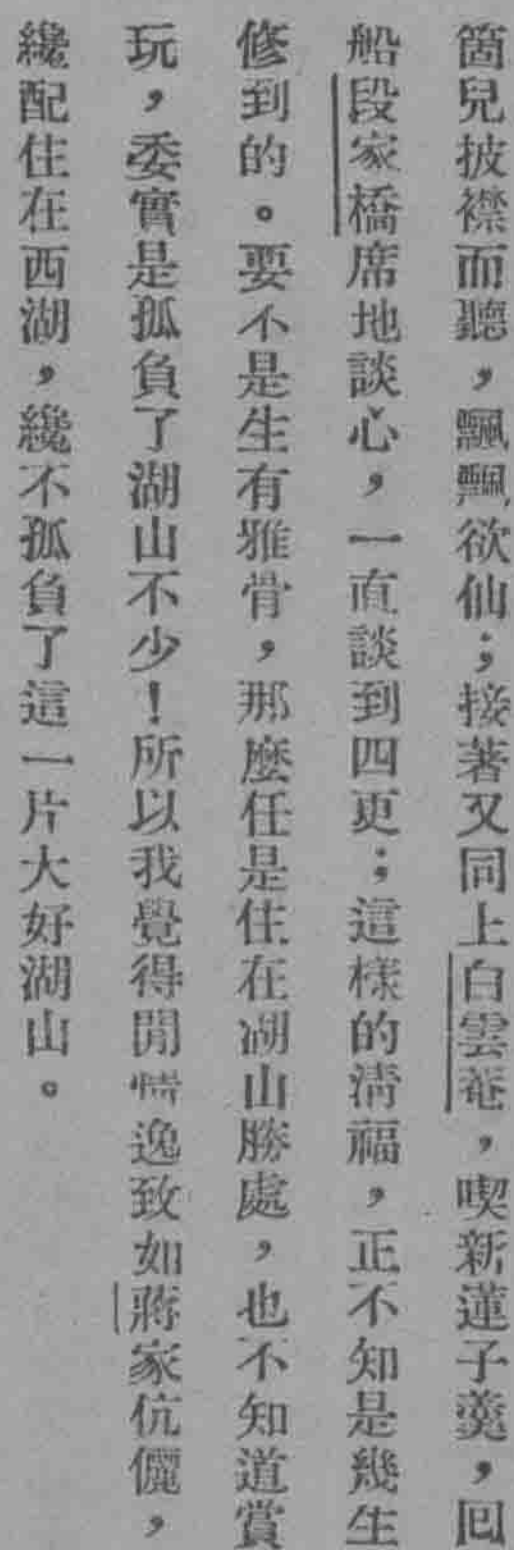 箇兒披襟而聽，飄飄欲仙；接著又同上白雲菴，喫新蓮子羹，回
船段家橋席地談心，一直談到四更；這樣的清福，正不知是幾生
修到的。要不是生有雅骨，那麼任是住在湖山勝處，也不知道賞
玩，委實是孤負了湖山不少！所以我覺得閒情逸致如蔣家伉儷，
纔配住在西湖，纔不孤負了這一片大好湖山。